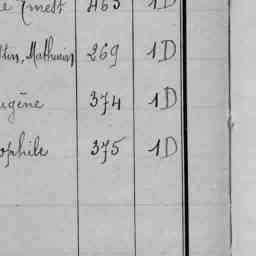 e Ernest 463 1D
tin, Mathurin 269 1D
ugène 374 1D
ophile 375 1D